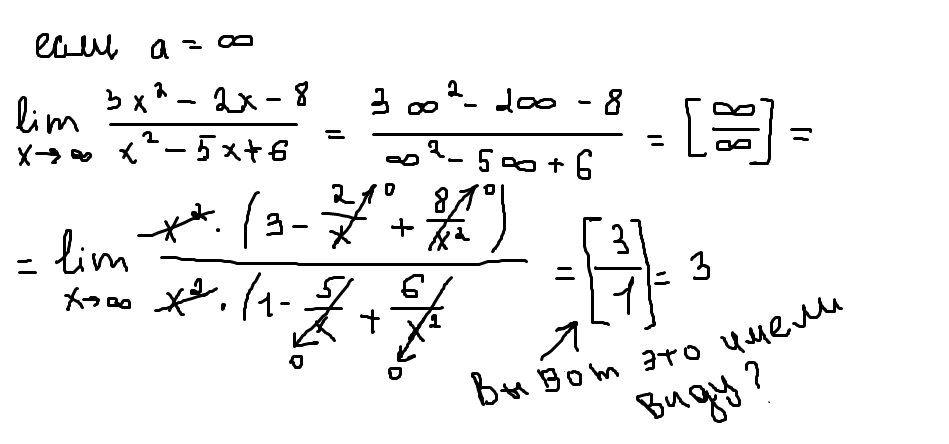 если a = ∞
lim x→∞ (3x² - 2x - 8)/(x² - 5x + 6) = (3∞² - 2∞ - 8)/(∞² - 5∞ + 6) = [∞/∞] =
= lim x→∞ (x² · (3 - 2/x→0 + 8/x²→0))/(x² · (1 - 5/x→0 + 6/x²→0)) = [3/1] = 3
Вы вот это имели
виду?